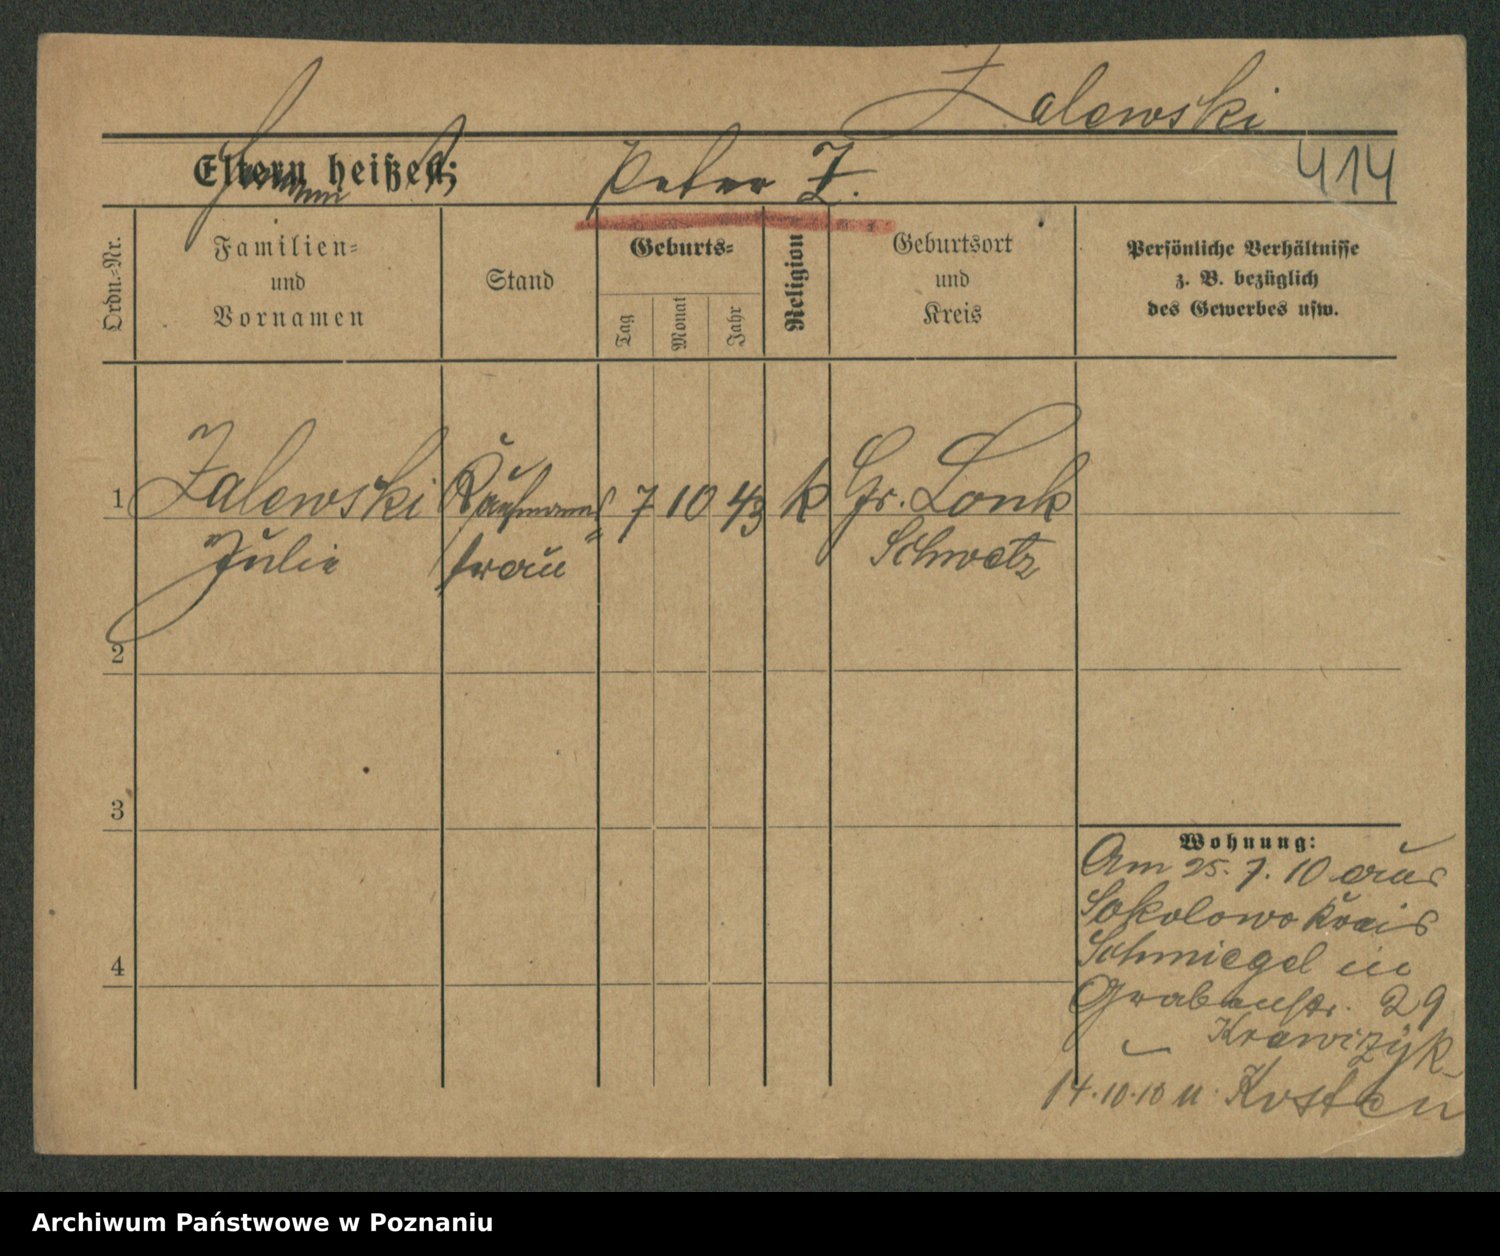 Zalewski
Eltern heißen:
Peter Z.
414
Ordn.=Nr.
Familien=
und
Vornamen
Stand
Geburts=
Tag
Monat
Jahr
Religion
Geburtsort
und
Kreis
Persönliche Verhältnisse
z. B. bezüglich
des Gewerbes usw.
1
Zalewski
Julie
Kaufmanns
frau
7 10 43
k
Gr. Lonk
Schwetz
2
3
4
Wohnung:
Am 25. 7. 10 aus
Sokolowo Kreis
Schmiegel in
Grabenstr. 29
Krawczyk
14.10.10 n. Kosten
Archiwum Państwowe w Poznaniu